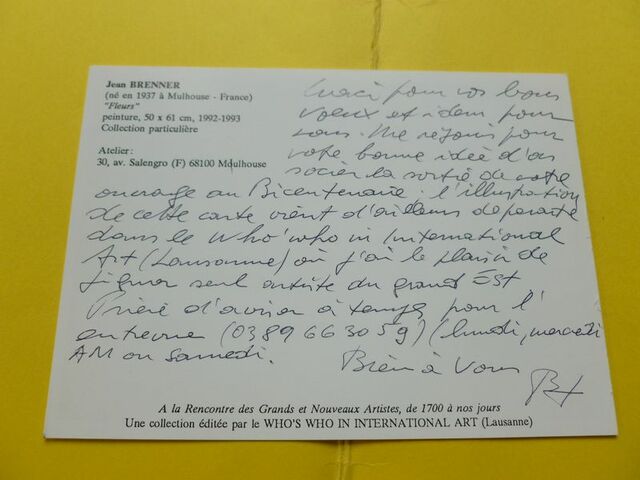 Jean BRENNER
(né en 1937 à Mulhouse - France)
"Fleurs"
peinture, 50 x 61 cm, 1992-1993
Collection particulière
Atelier:
30, av. Salengro (F) 68100 Mulhouse
Merci pour vos bons
voeux et idem pour
vous. Me réjouis pour
votre bonne idée d'as
socier la sortie de votre
ouvrage au Bicentenaire. L'illustration
de cette carte vient d'ailleurs de paraître
dans le Who'who in International
Art (Lausanne) où j'ai le plaisir de
figurer seul artiste du grand Est
Prière d'aviser à temps pour l'
entrevue (0389663059) (lundi, mercredi
AM ou samedi.
Bien à Vous
A la Rencontre des Grands et Nouveaux Artistes, de 1700 à nos jours
Une collection éditée par le WHO'S WHO IN INTERNATIONAL ART (Lausanne)